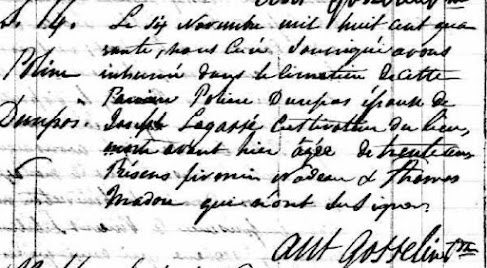 S. 14. Le six Novembre mil huit cent qua
rante, nous Curé soussigné avons
Poline inhumé dans le cimetière de cette
Paroisse Poline Dumpas épouse de
Dumpas. Joseph Lagassé Cultivateur du lieu,
morte avant hier agée de trente ans
Présens firmin Nadeau & thomas
Nadou qui n'ont su signer.
Ant Gosselin Ptre